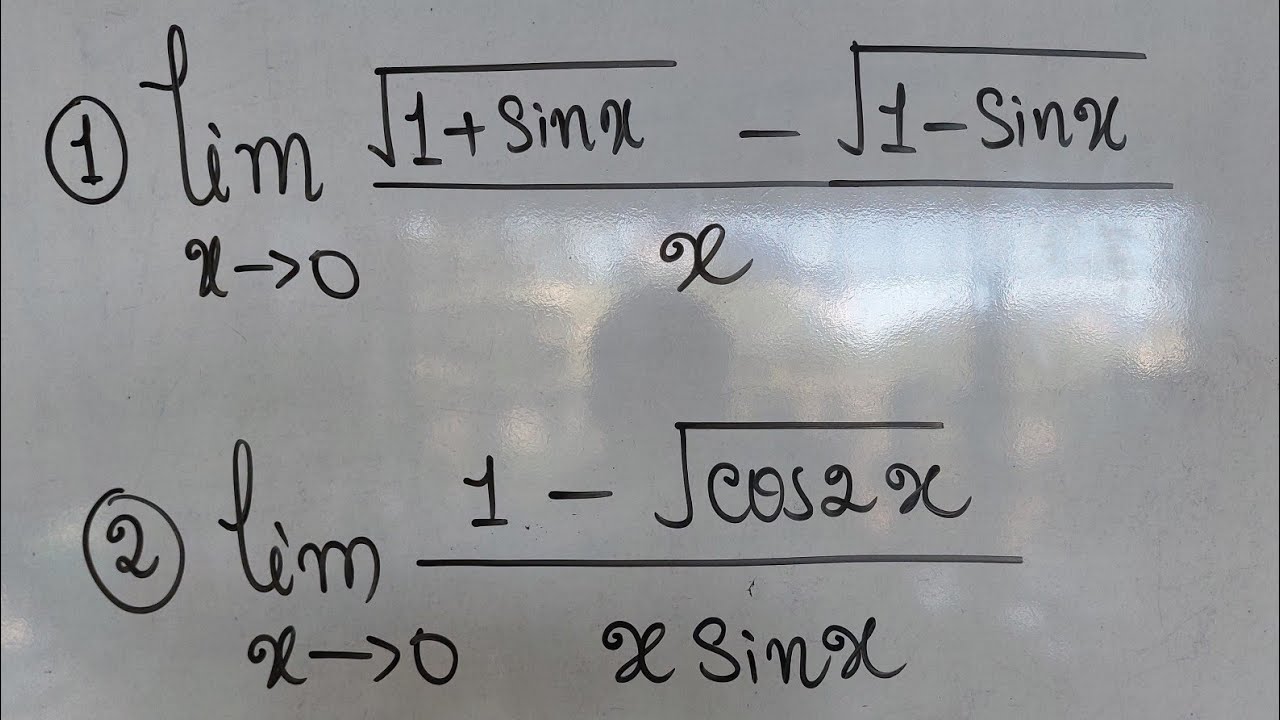 ① lim x→0 (√(1+sinx) − √(1−sinx)) / x
② lim x→0 (1 − √(cos2x)) / (x sinx)